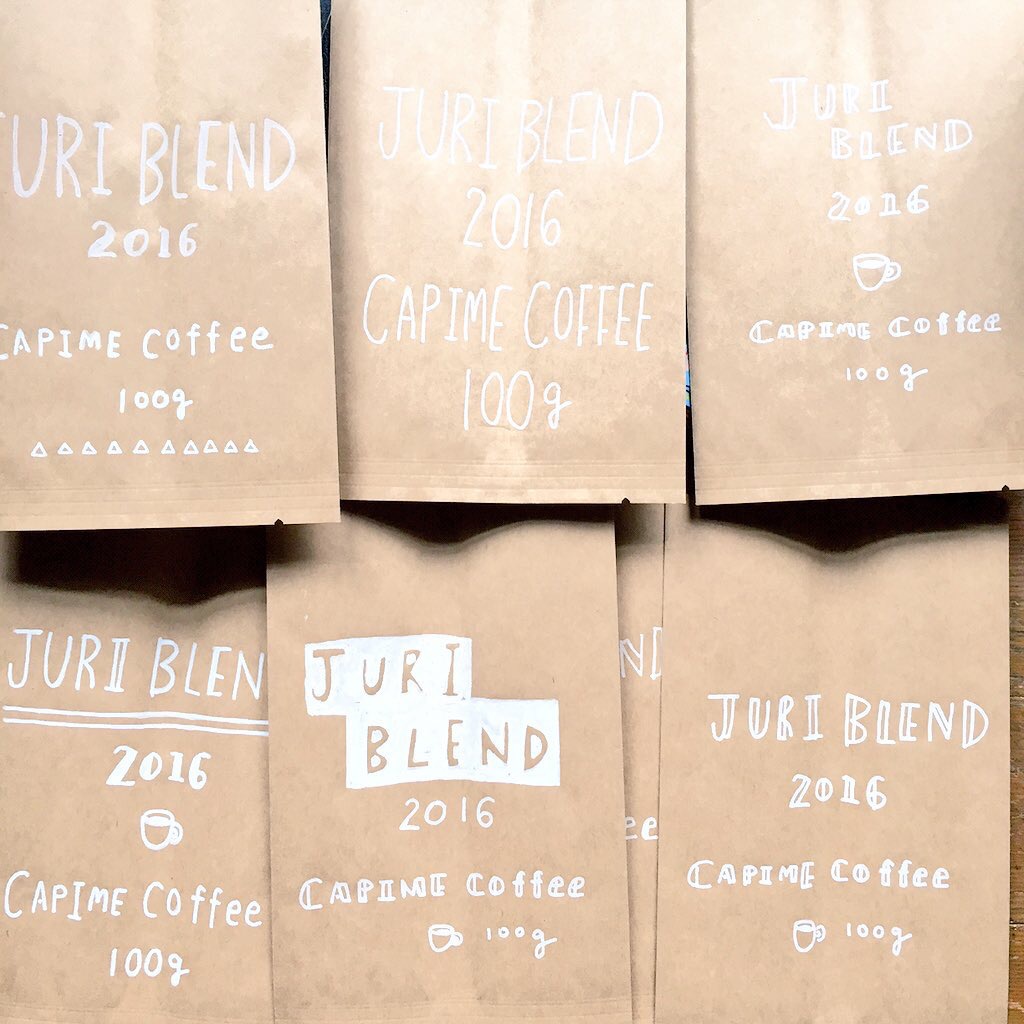 JURI BLEND
2016
CAPIME Coffee
100g
JURI BLEND
2016
CAPIME COFFEE
100g
JURI
BLEND
2016
CAPIME Coffee
100g
JURI BLEN
2016
CAPIME Coffee
100g
JURI
BLEND
2016
CAPIME Coffee
100g
ND
ee
JURI BLEND
2016
CAPIME Coffee
100g